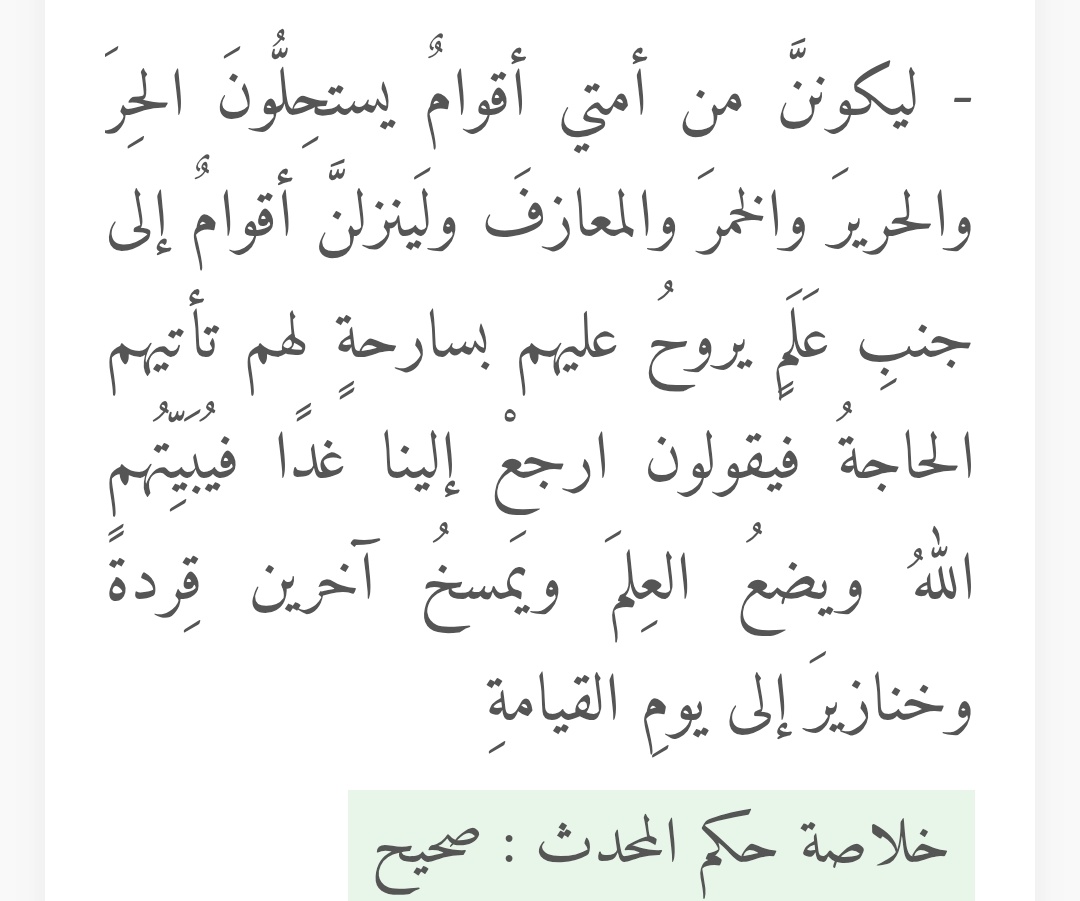 - ليكوننَّ من أمتي أقوامٌ يستحِلُّونَ الحِرَ
والحريرَ والخمرَ والمعازفَ ولَينزلنَّ أقوامٌ إلى
جنبِ عَلَمٍ يروحُ عليهم بسارحةٍ لهم تأتيهم
الحاجةُ فيقولون ارجعْ إلينا غدًا فيُبَيِّتُهم
اللهُ ويضعُ العِلمَ ويَمسخُ آخرين قِردةً
وخنازيرَ إلى يومِ القيامةِ
خلاصة حكم المحدث : صحيح